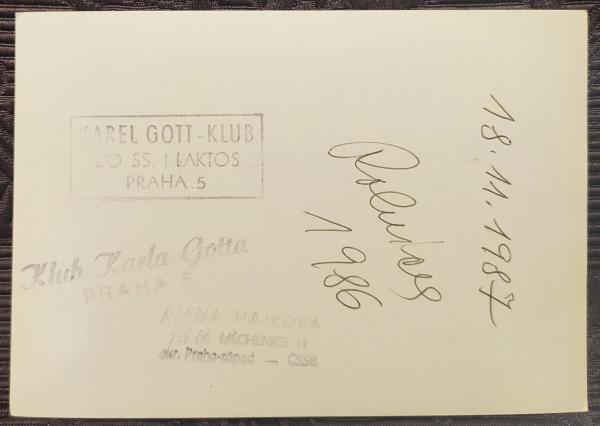 KAREL GOTT-KLUB
ZO SS. I LAKTOS
PRAHA.5
Klub Karla Gotta
PRAHA 5
ALENA HÁJKOVÁ
252 06 MĚCHENICE 11
okr. Praha-západ — ČSSR
1986
18.11.1987